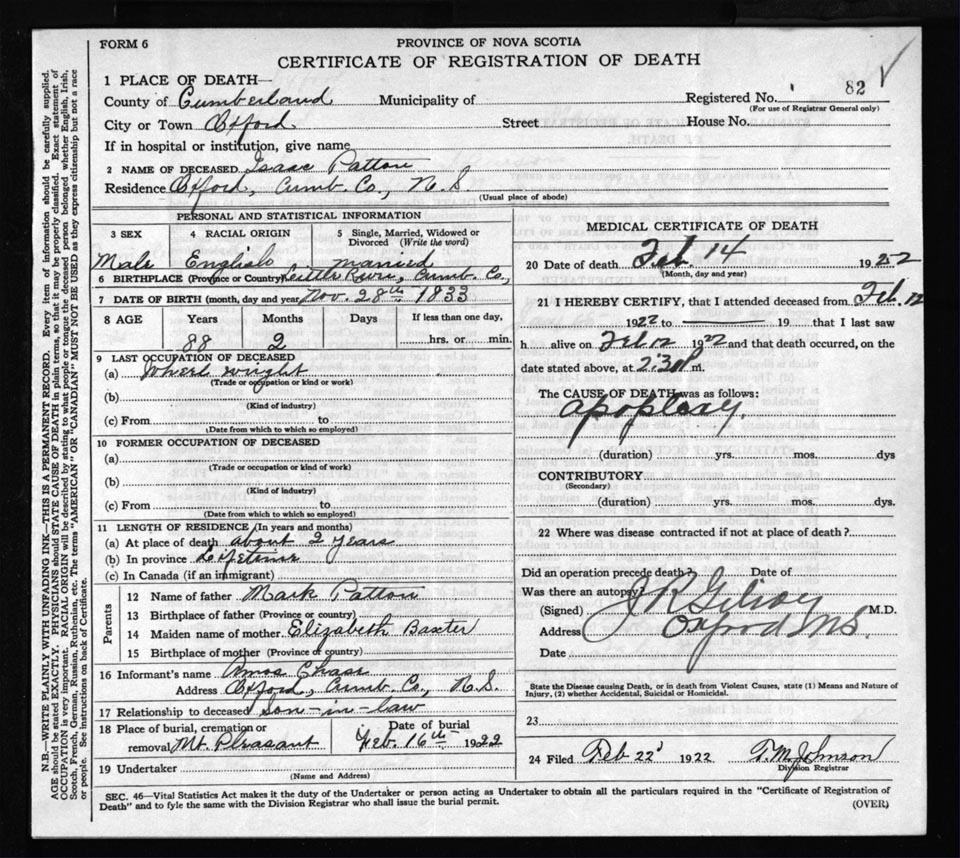 FORM 6
PROVINCE OF NOVA SCOTIA
CERTIFICATE OF REGISTRATION OF DEATH
1 PLACE OF DEATH—
County of Cumberland Municipality of Registered No. 82
(For use of Registrar General only)
City or Town Oxford Street House No.
If in hospital or institution, give name
2 NAME OF DECEASED Isaac Patton
Residence Oxford, Cumb. Co., N.S.
(Usual place of abode)
PERSONAL AND STATISTICAL INFORMATION
3 SEX 4 RACIAL ORIGIN 5 Single, Married, Widowed or Divorced (Write the word)
Male English married
6 BIRTHPLACE (Province or Country) Little River, Cumb. Co,
7 DATE OF BIRTH (month, day and year) Nov. 28th 1833
8 AGE Years Months Days If less than one day,
88 2 hrs. or min.
9 LAST OCCUPATION OF DECEASED
(a) Wheel wright
(Trade or occupation or kind or work)
(b)
(Kind of industry)
(c) From to
(Date from which to which so employed)
10 FORMER OCCUPATION OF DECEASED
(a)
(Trade or occupation or kind of work)
(b)
(Kind of industry)
(c) From to
(Date from which to which so employed)
11 LENGTH OF RESIDENCE (In years and months)
(a) At place of death about 2 years
(b) In province Lifetime
(c) In Canada (if an immigrant)
Parents
12 Name of father Mark Patton
13 Birthplace of father (Province or country)
14 Maiden name of mother Elizabeth Baxter
15 Birthplace of mother (Province or country)
16 Informant's name Amos Chase
Address Oxford, Cumb. Co., N.S.
17 Relationship to deceased son-in-law
18 Place of burial, cremation or removal Mt. Pleasant
Date of burial
Feb. 16th 1922
19 Undertaker
(Name and Address)
MEDICAL CERTIFICATE OF DEATH
20 Date of death Feb. 14 1922
(Month, day and year)
21 I HEREBY CERTIFY, that I attended deceased from Feb. 12
1922 to 19 that I last saw
h alive on Feb 12 1922 and that death occurred, on the
date stated above, at 2:30 P m.
The CAUSE OF DEATH was as follows:
Apoplexy.
(duration) yrs. mos. dys
CONTRIBUTORY
(Secondary)
(duration) yrs. mos. dys.
22 Where was disease contracted if not at place of death?
Did an operation precede death? Date of
Was there an autopsy?
(Signed) J R Gilroy M.D.
Address Oxford N.S.
Date
State the Disease causing Death, or in death from Violent Causes, state (1) Means and Nature of
Injury, (2) whether Accidental, Suicidal or Homicidal.
23
24 Filed Feb 22 1922 T. M. Johnson
Division Registrar
SEC. 46—Vital Statistics Act makes it the duty of the Undertaker or person acting as Undertaker to obtain all the particulars required in the "Certificate of Registration of
Death" and to fyle the same with the Division Registrar who shall issue the burial permit.
(OVER)
N.B.—WRITE PLAINLY WITH UNFADING INK—THIS IS A PERMANENT RECORD. Every item of information should be carefully supplied.
AGE should be stated EXACTLY. PHYSICIANS should STATE CAUSE OF DEATH in plain terms, so that it may be properly classified. Exact statement of
OCCUPATION is very important. RACIAL ORIGIN will be described by stating to what people or tongue the deceased person belonged whether English, Irish,
Scotch, French, German, Russian, Ruthenian, etc. The terms "AMERICAN" OR "CANADIAN" MUST NOT BE USED as they express citizenship but not a race
or people. See instructions on back of Certificate.